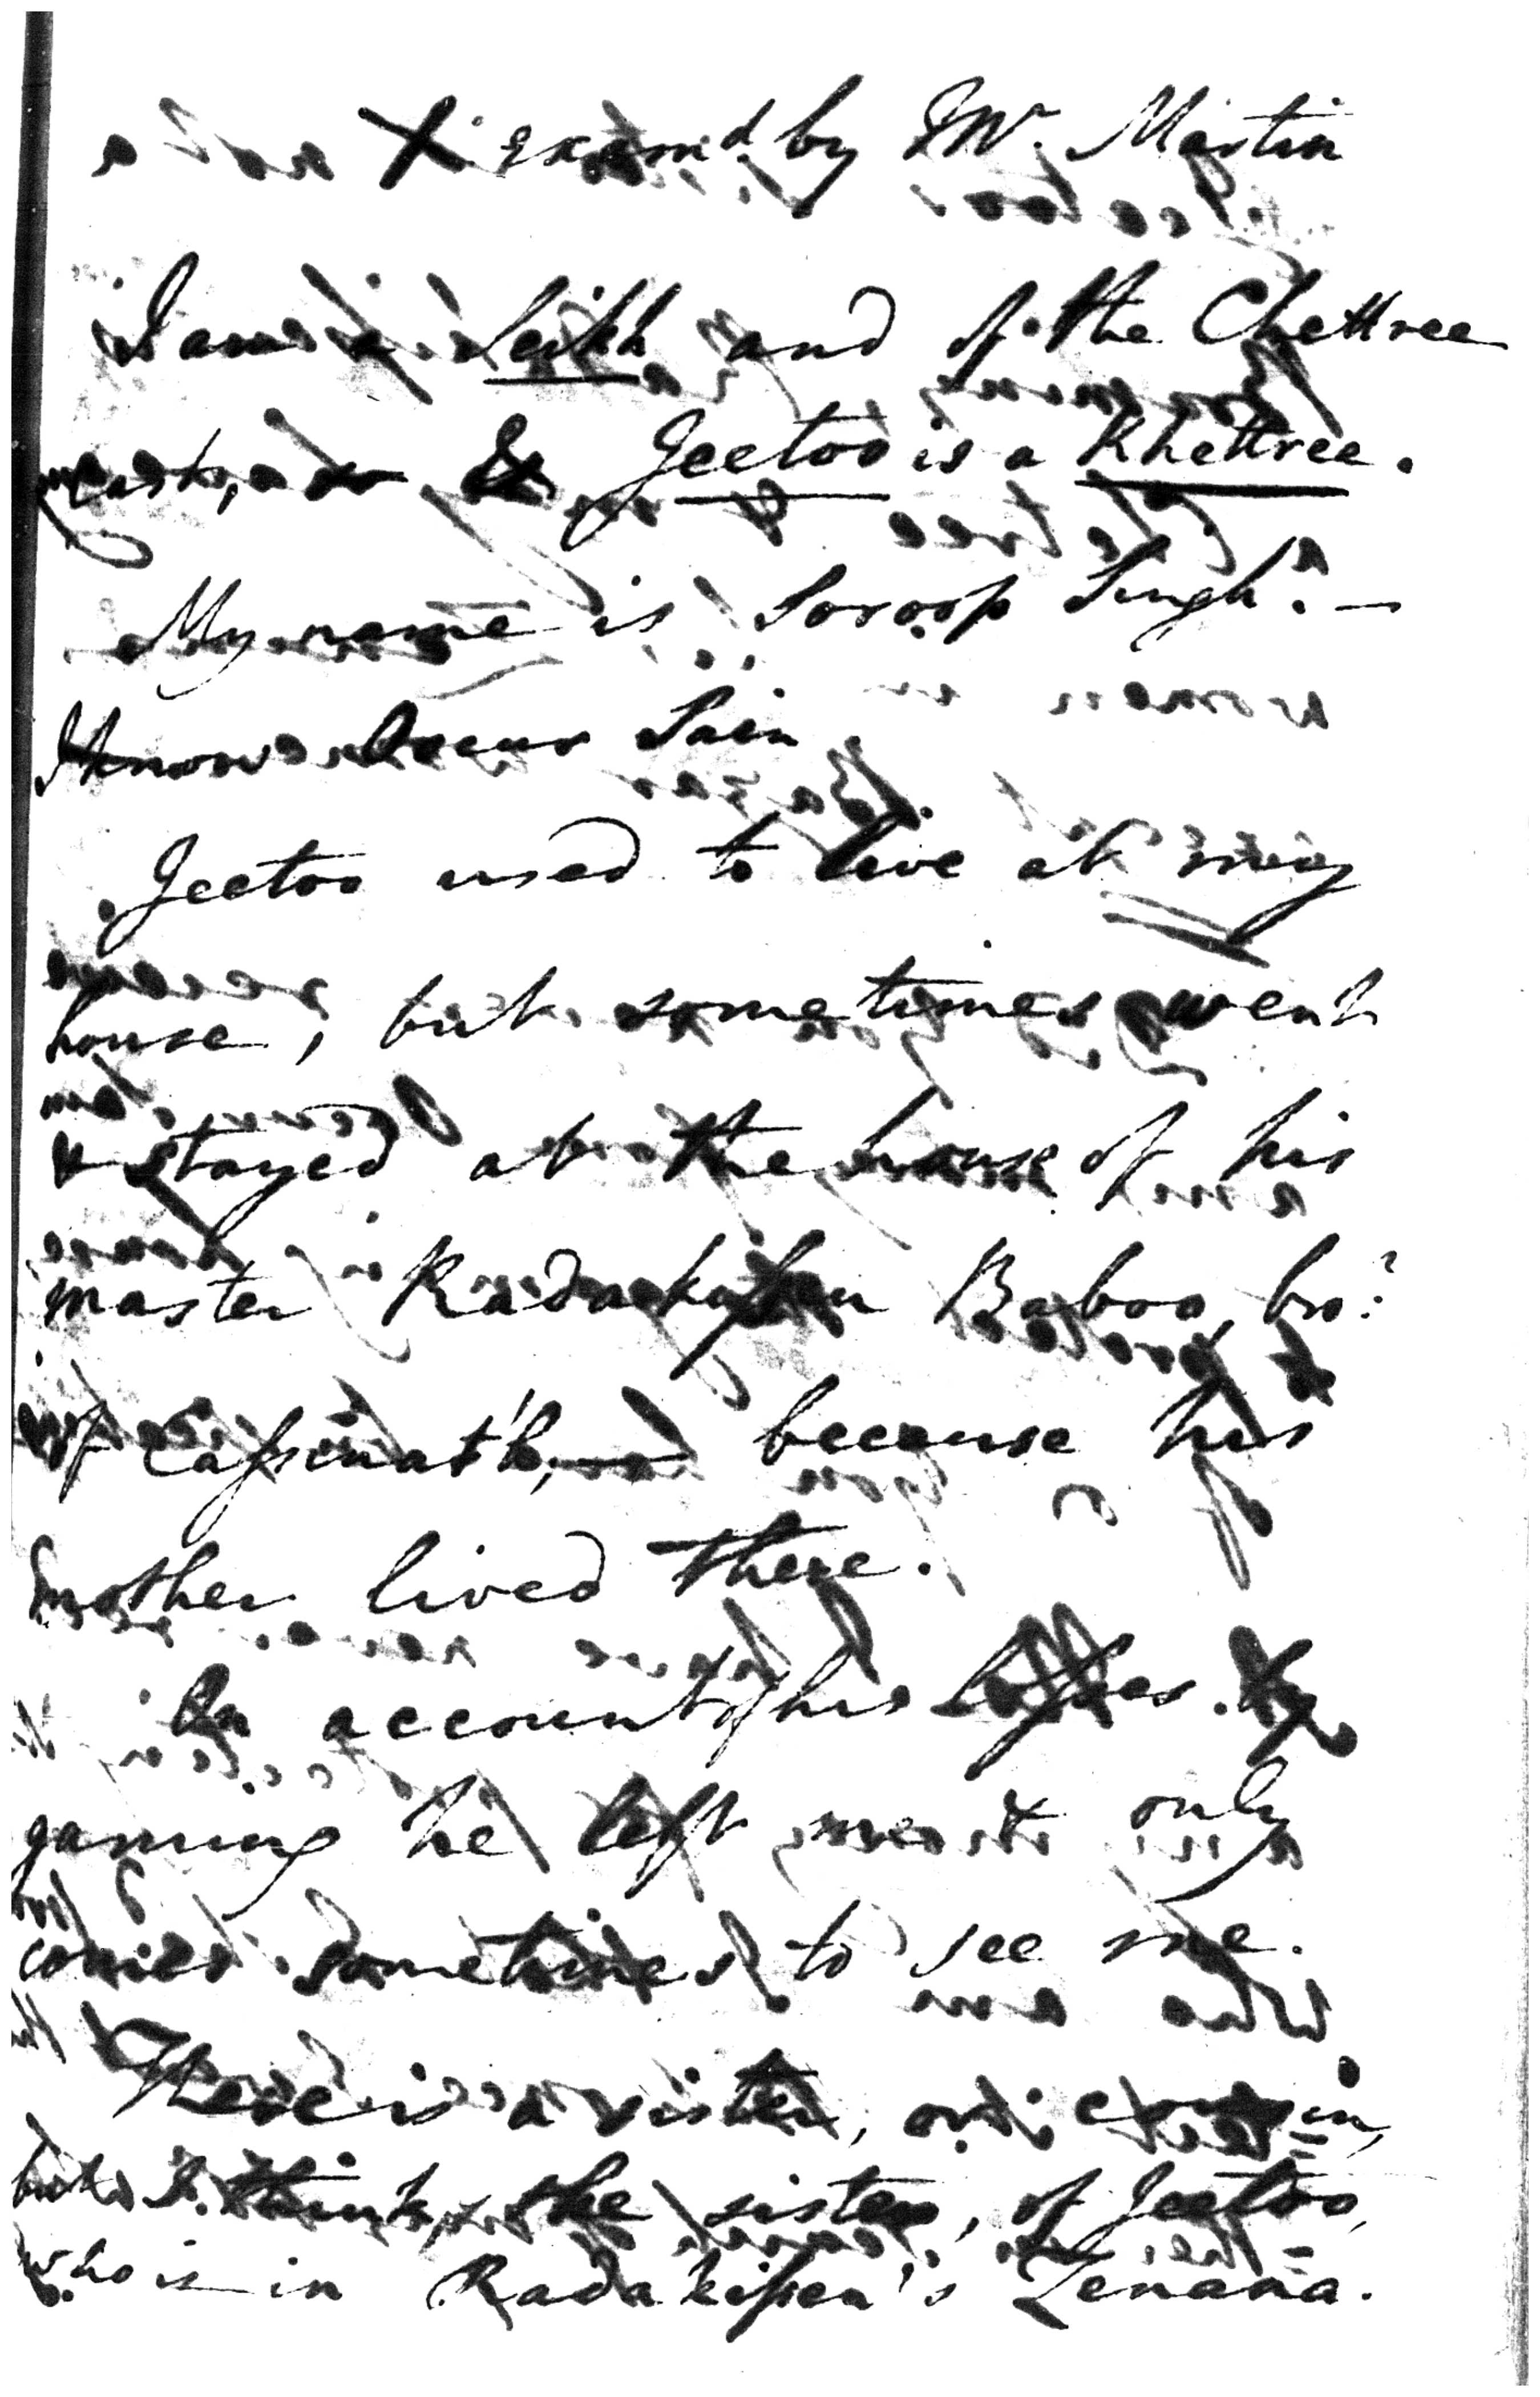 X examd. by Mr. Martin
I am a Seikh and of the Chettree
cast, & Jeetoo is a Khettree.
My name is Soroop Singh. —
I know Sain
Jeetoo used to live at my
house, but sometimes went
& stayed at the house of his
master Radakissen Baboo, bro:
of Cassinath, because his
mother lived there.
On account of his losses by
gaming he left me & only
comes sometimes to see me.
There is a sister, or cousin,
but I think, the sister, of Jeetoo,
who is in Radakissen's Zenana.